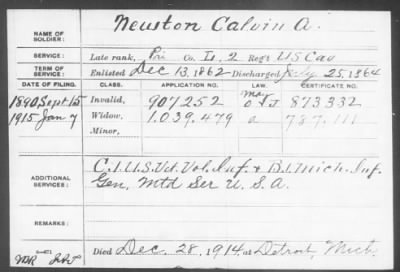 NAME OF SOLDIER: Newston Calvin A.
SERVICE: Late rank, Pri Co. L. 2 Reg't U S Cav
TERM OF SERVICE: Enlisted Dec 13, 1862 Discharged July 25, 1864
DATE OF FILING. CLASS. APPLICATION NO. LAW. CERTIFICATE NO.
May
1890 Sept. 15 Invalid, 907252 873332
1915 Jan 7 Widow, 1.039.479 a 787.111
Minor,
ADDITIONAL SERVICES: C. 1. U.S. Vet. Vol. Inf. & B. 1. Mich. Inf.
Gen. Mtd Ser U.S.A.
REMARKS:
Died Dec. 28, 1914, at Detroit, Mich.